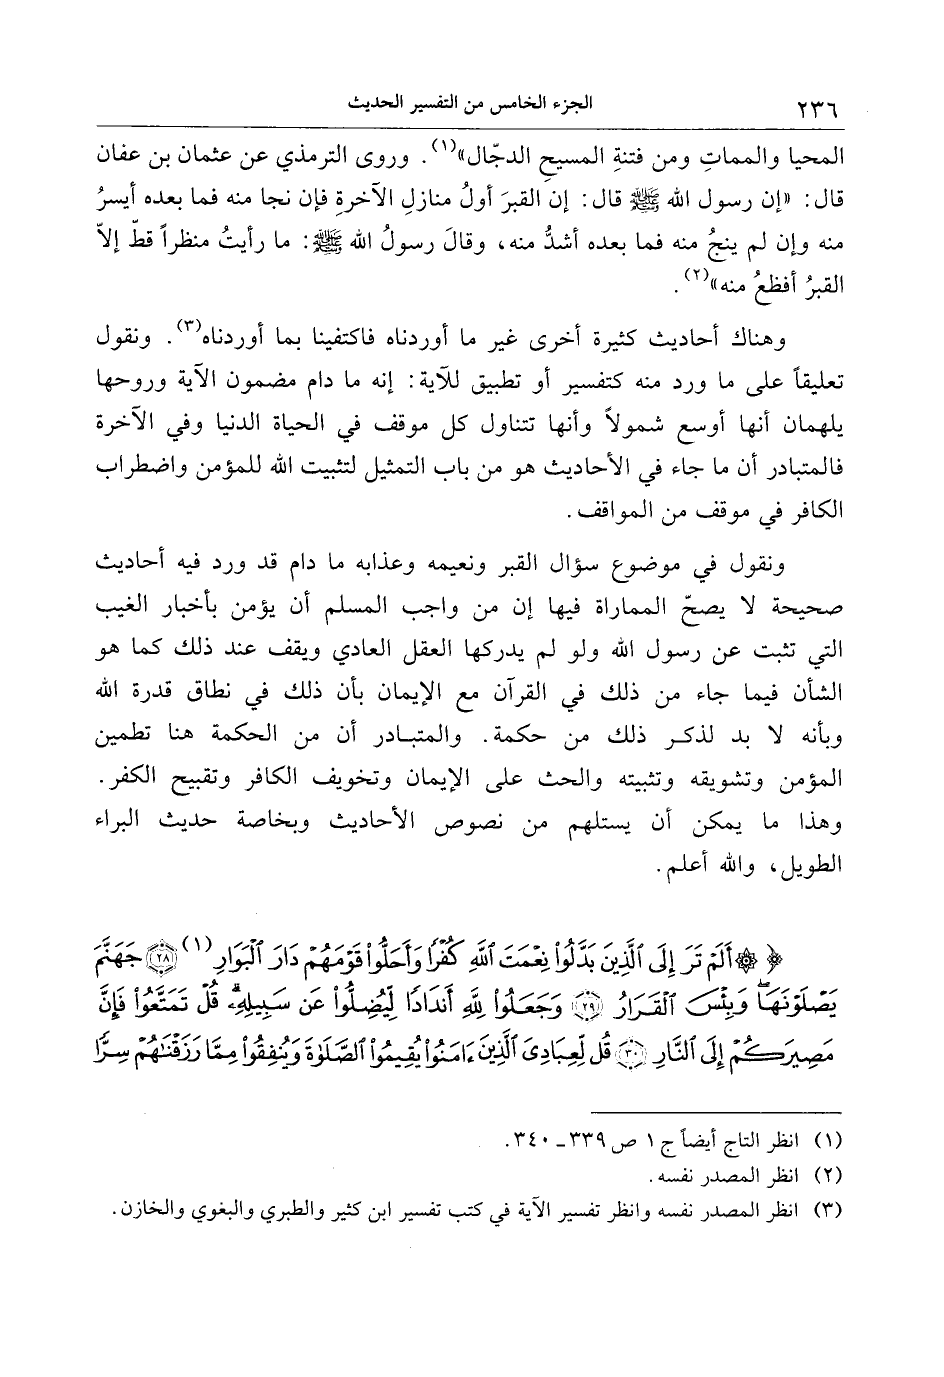 ٢٣٦ الجزء الخامس من التفسير الحديث
المحيا والمماتِ ومن فتنةِ المسيحِ الدجّال»(١). وروى الترمذي عن عثمان بن عفان
قال: «إن رسول الله ﷺ قال: إن القبرَ أولُ منازلِ الآخرةِ فإن نجا منه فما بعده أيسرُ
منه وإن لم ينجُ منه فما بعده أشدُّ منه، وقالَ رسولُ الله ﷺ: ما رأيتُ منظراً قطّ إلاّ
القبرُ أفظعُ منه»(٢).
وهناك أحاديث كثيرة أخرى غير ما أوردناه فاكتفينا بما أوردناه(٣). ونقول
تعليقاً على ما ورد منه كتفسير أو تطبيق للآية: إنه ما دام مضمون الآية وروحها
يلهمان أنها أوسع شمولاً وأنها تتناول كل موقف في الحياة الدنيا وفي الآخرة
فالمتبادر أن ما جاء في الأحاديث هو من باب التمثيل لتثبيت الله للمؤمن واضطراب
الكافر في موقف من المواقف.
ونقول في موضوع سؤال القبر ونعيمه وعذابه ما دام قد ورد فيه أحاديث
صحيحة لا يصحّ المماراة فيها إن من واجب المسلم أن يؤمن بأخبار الغيب
التي تثبت عن رسول الله ولو لم يدركها العقل العادي ويقف عند ذلك كما هو
الشأن فيما جاء من ذلك في القرآن مع الإيمان بأن ذلك في نطاق قدرة الله
وبأنه لا بد لذكر ذلك من حكمة. والمتبادر أن من الحكمة هنا تطمين
المؤمن وتشويقه وتثبيته والحث على الإيمان وتخويف الكافر وتقبيح الكفر.
وهذا ما يمكن أن يستلهم من نصوص الأحاديث وبخاصة حديث البراء
الطويل، والله أعلم.
﴿ ۞ أَلَمْ تَرَ إِلَى الَّذِينَ بَدَّلُوا نِعْمَتَ اللَّهِ كُفْرًا وَأَحَلُّوا قَوْمَهُمْ دَارَ الْبَوَارِ (١) ﴿٢٨﴾ جَهَنَّمَ
يَصْلَوْنَهَا ۖ وَبِئْسَ الْقَرَارُ ﴿٢٩﴾ وَجَعَلُوا لِلَّهِ أَنْدَادًا لِيُضِلُّوا عَنْ سَبِيلِهِ ۗ قُلْ تَمَتَّعُوا فَإِنَّ
مَصِيرَكُمْ إِلَى النَّارِ ﴿٣٠﴾ قُلْ لِعِبَادِيَ الَّذِينَ ءَامَنُوا يُقِيمُوا الصَّلَوٰةَ وَيُنْفِقُوا مِمَّا رَزَقْنَٰهُمْ سِرًّا
(١) انظر التاج أيضاً ج ١ ص ٣٣٩ - ٣٤٠.
(٢) انظر المصدر نفسه.
(٣) انظر المصدر نفسه وانظر تفسير الآية في كتب تفسير ابن كثير والطبري والبغوي والخازن.